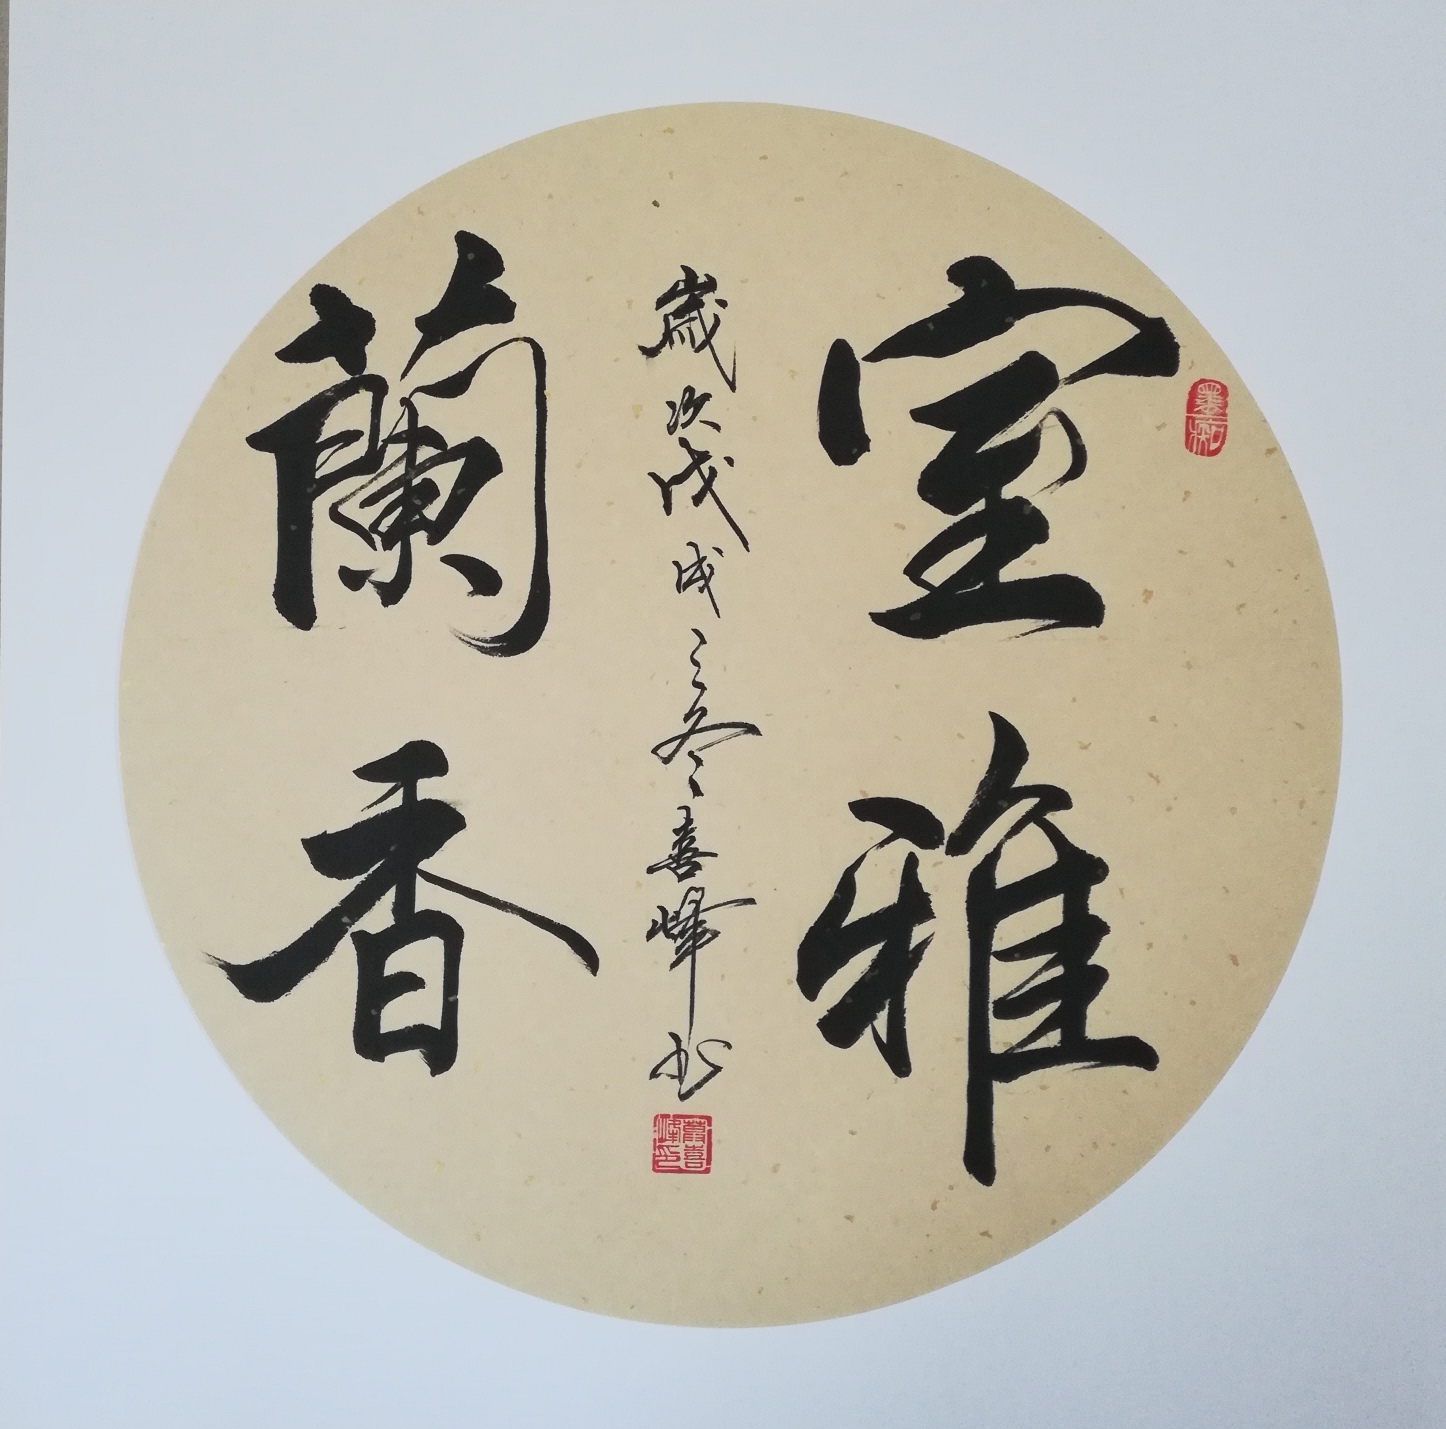 室雅
歲次戊戌之冬喜峰书
蘭香